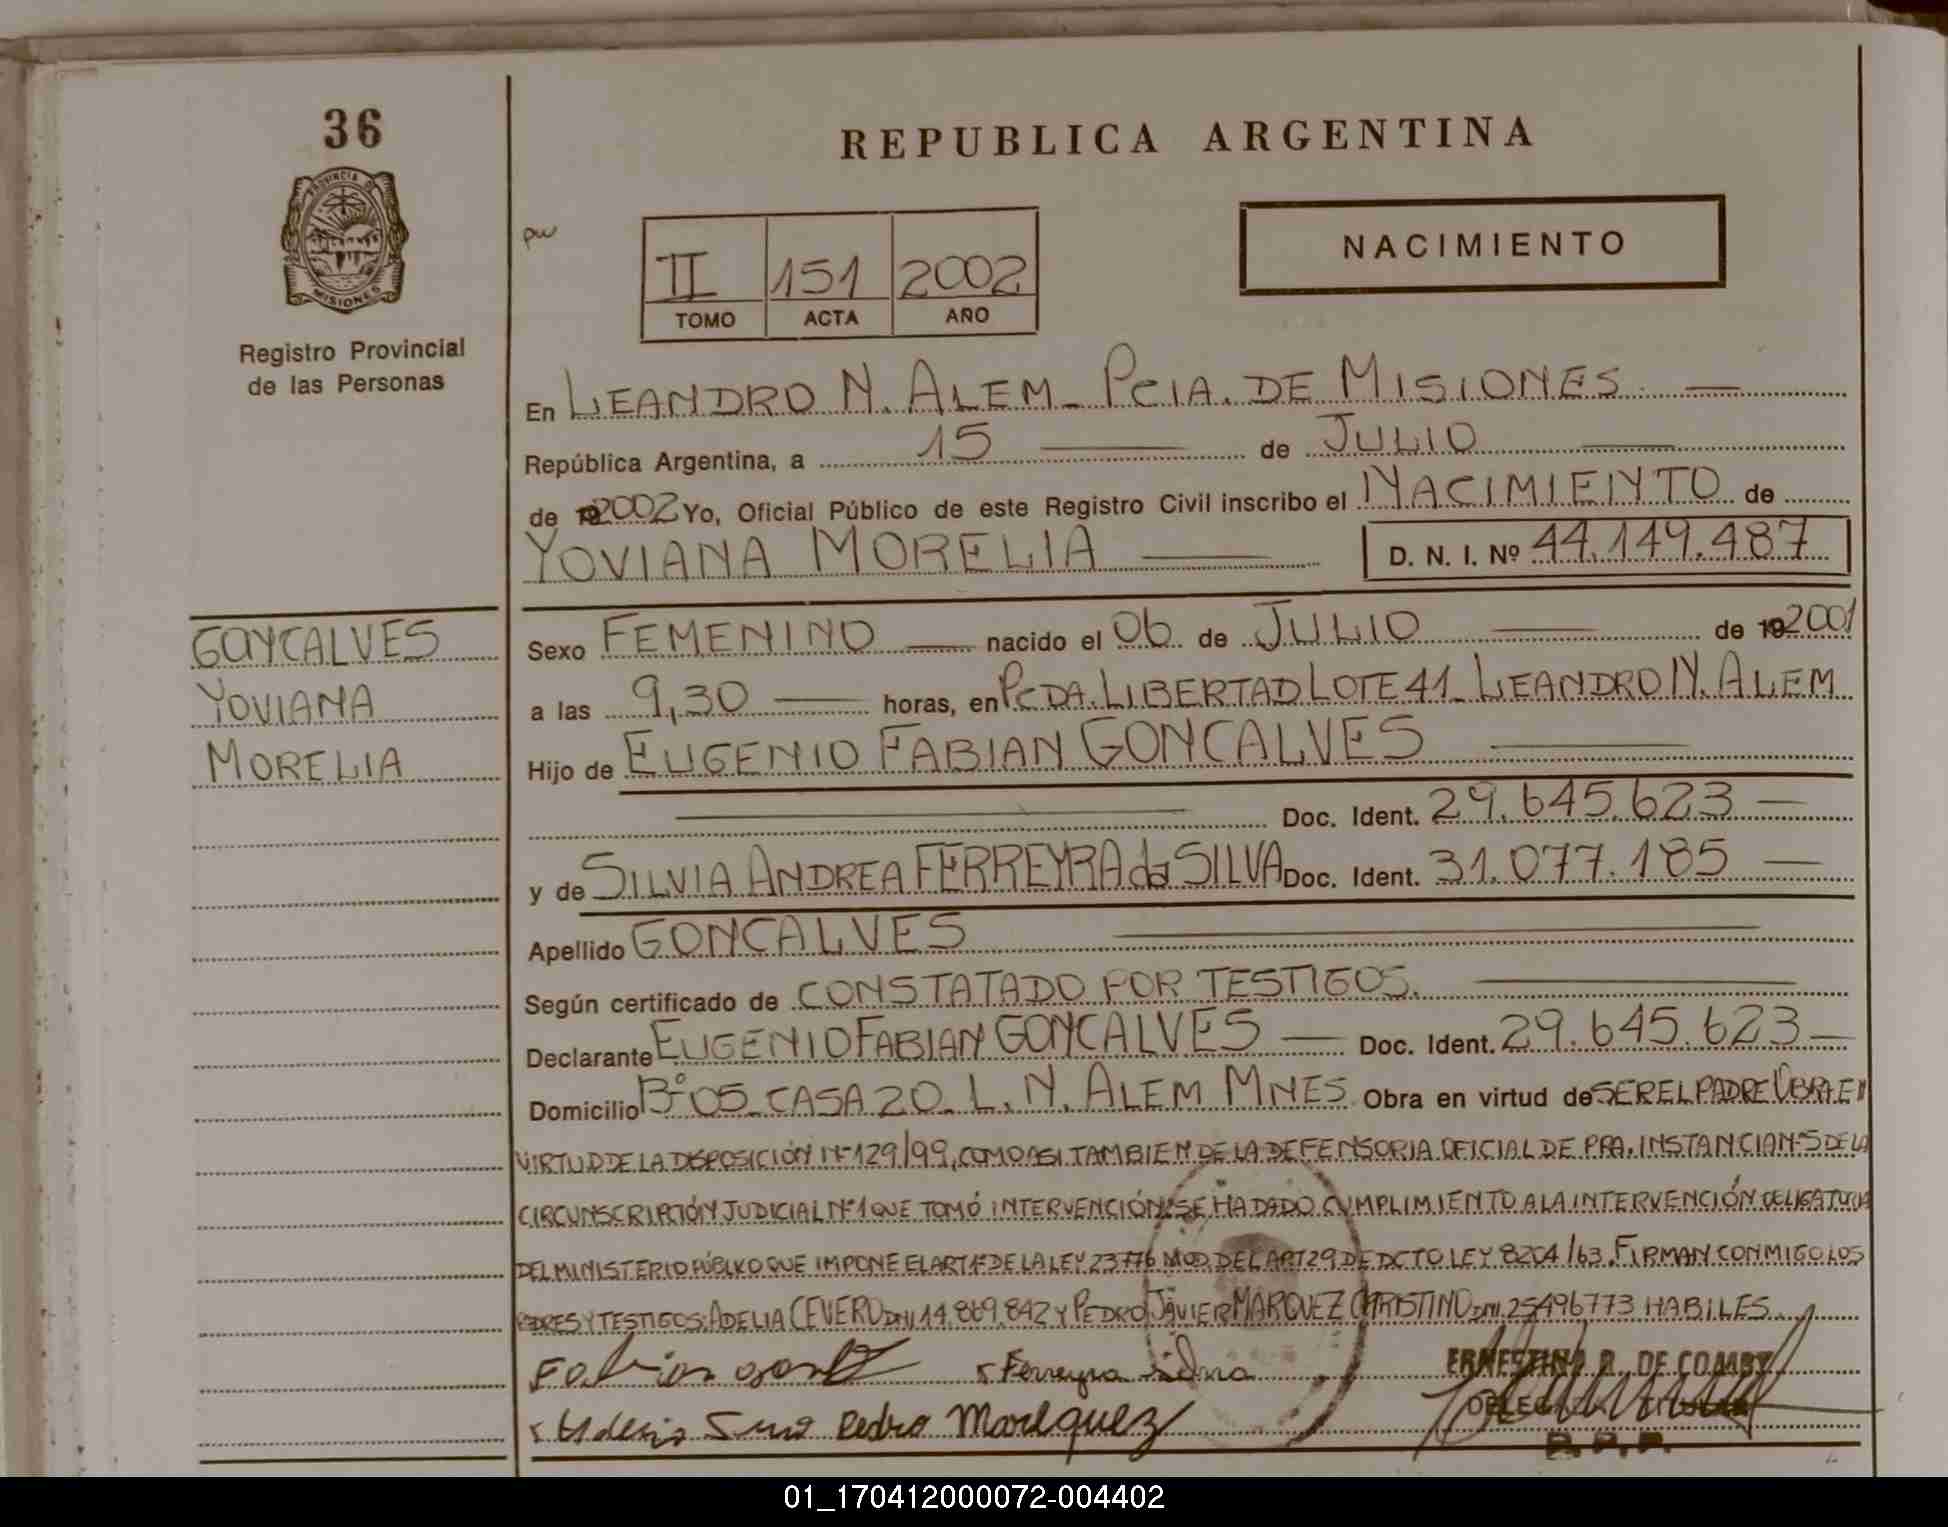 36
REPUBLICA ARGENTINA
PROVINCIA DE
MISIONES
Registro Provincial
de las Personas
NACIMIENTO
II 151 2002
TOMO ACTA AÑO
En LEANDRO N. ALEM - PCIA. DE MISIONES
República Argentina, a 15 de JULIO
de 2002 Yo, Oficial Público de este Registro Civil inscribo el NACIMIENTO de
YOVIANA MORELIA D. N. I. Nº 44.149.487
GONCALVES
YOVIANA
MORELIA
Sexo FEMENINO nacido el 06 de JULIO de 2001
a las 9,30 horas, en PCDA. LIBERTAD LOTE 41 - LEANDRO N. ALEM
Hijo de EUGENIO FABIAN GONCALVES
Doc. Ident. 29.645.623
y de SILVIA ANDREA FERREYRA da SILVA Doc. Ident. 31.077.185
Apellido GONCALVES
Según certificado de CONSTATADO POR TESTIGOS.
Declarante EUGENIO FABIAN GONCALVES Doc. Ident. 29.645.623
Domicilio Bº 05 - CASA 20 - L. N. ALEM MNES Obra en virtud de SER EL PADRE OBRA EN
VIRTUD DE LA DISPOSICIÓN Nº 129/99, COMO ASI TAMBIEN DE LA DEFENSORIA OFICIAL DE PRA. INSTANCIA Nº 5 DE LA
CIRCUNSCRIPCIÓN JUDICIAL Nº 1 QUE TOMÓ INTERVENCIÓN "SE HA DADO CUMPLIMIENTO A LA INTERVENCIÓN
DEL MINISTERIO PÚBLICO QUE IMPONE EL ART 1º DE LA LEY 23776 MOD. DEL ART 29 DE DCTO LEY 8204/63. FIRMAN CONMIGO LOS
PADRES Y TESTIGOS: ADELIA CEVERO DNI 14.869.842 Y PEDRO JAVIER MARQUEZ CHRISTINO DNI. 25496773 HABILES.
Fabian
Ferreyra
Pedro Marquez
ERNESTINA R. DE COMBY
R. P. P.
01_170412000072-004402